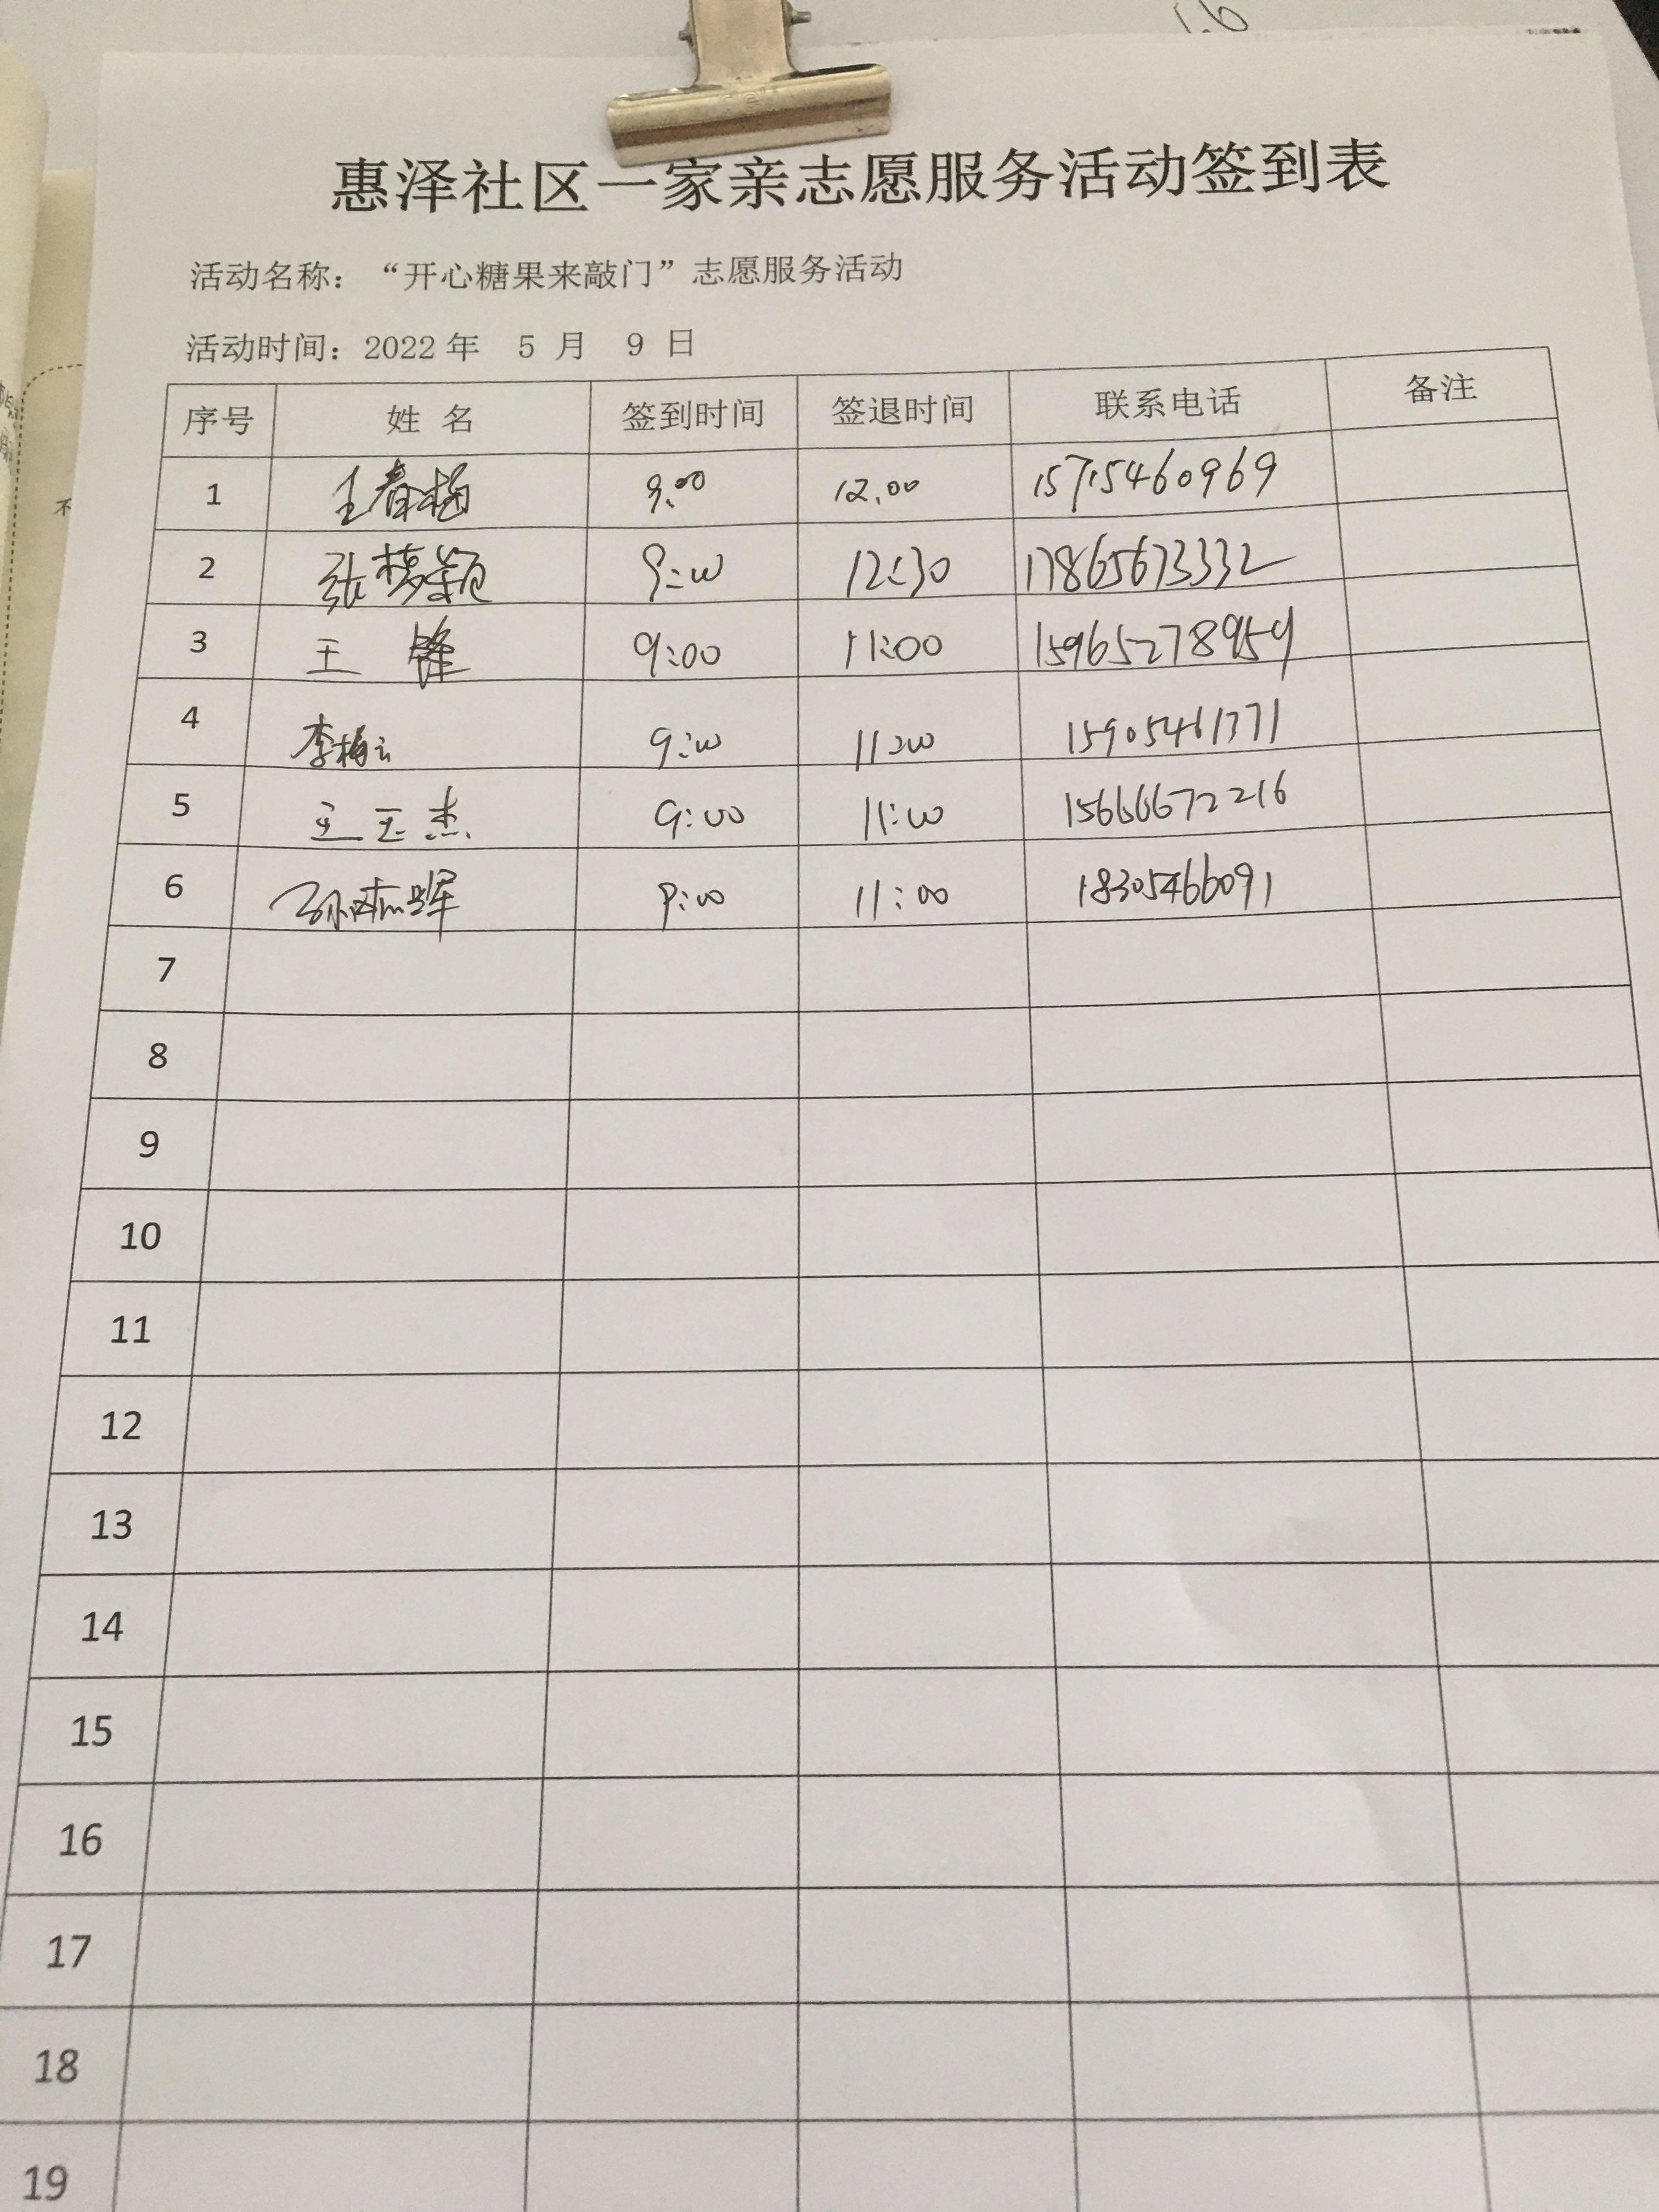 1.6
惠泽社区一家亲志愿服务活动签到表
活动名称：“开心糖果来敲门”志愿服务活动
活动时间：2022 年 5 月 9 日
序号 姓 名 签到时间 签退时间 联系电话 备注
1 王春梅 9.00 12.00 15715460969
2 张梦颖 9:00 12:30 17865673332
3 王 锋 9:00 11:00 15965278959
4 李梅云 9:00 11:00 15905461371
5 王玉杰 9:00 11:00 15666672216
6 孙 9:00 11:00 18305466091
7
8
9
10
11
12
13
14
15
16
17
18
19